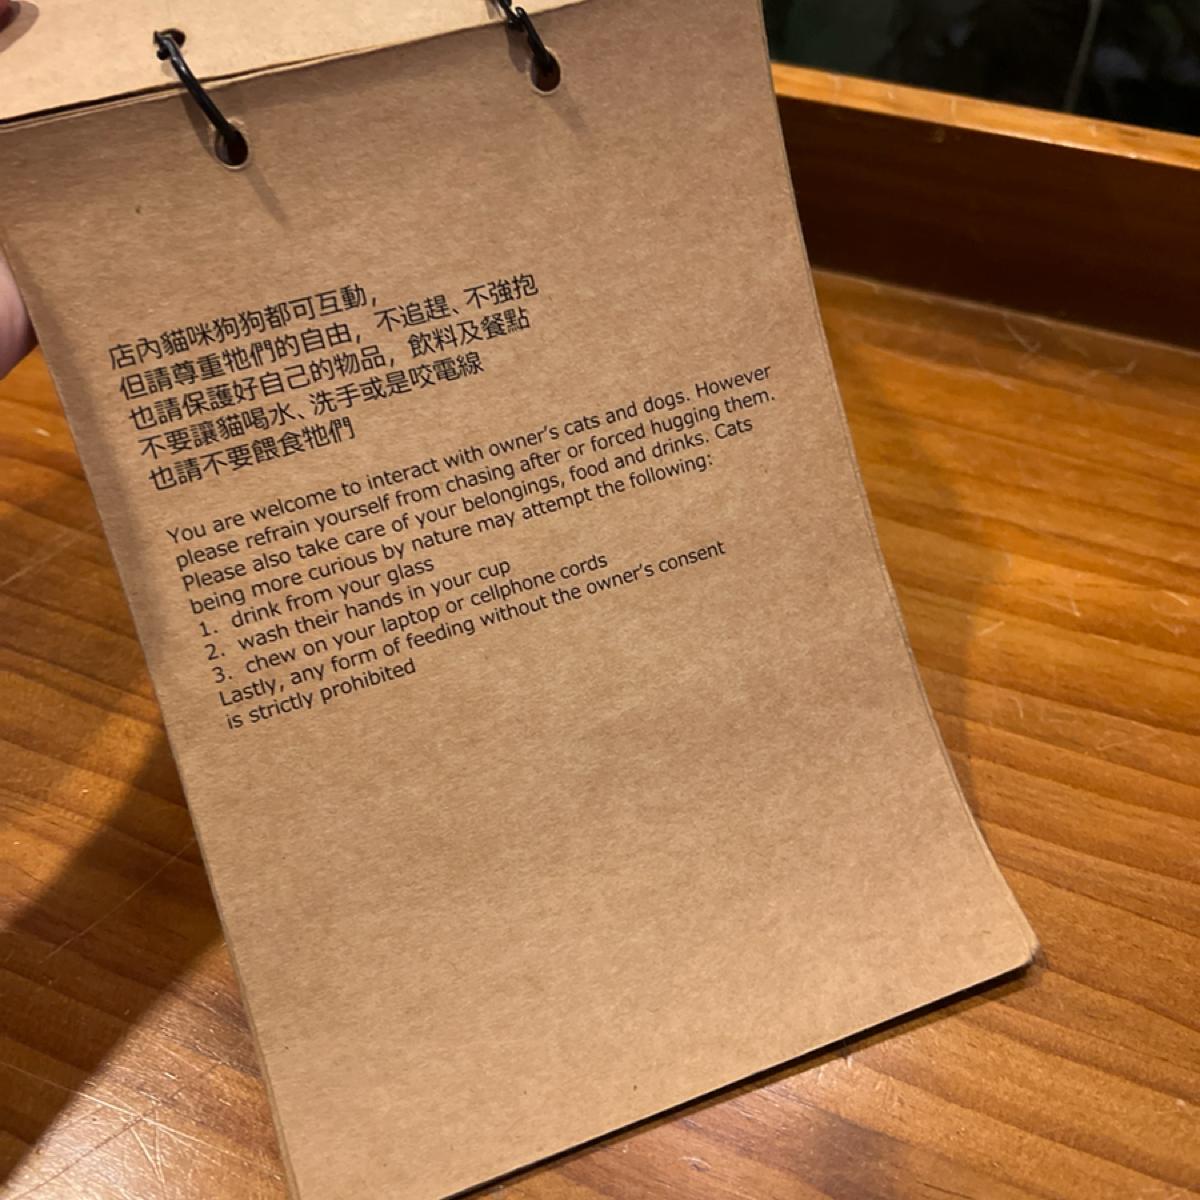 店內貓咪狗狗都可互動，
但請尊重牠們的自由，不追趕、不強抱
也請保護好自己的物品，飲料及餐點
不要讓貓喝水、洗手或是咬電線
也請不要餵食牠們
You are welcome to interact with owner's cats and dogs. However
please refrain yourself from chasing after or forced hugging them.
Please also take care of your belongings, food and drinks. Cats
being more curious by nature may attempt the following:
1. drink from your glass
2. wash their hands in your cup
3. chew on your laptop or cellphone cords
Lastly, any form of feeding without the owner's consent
is strictly prohibited